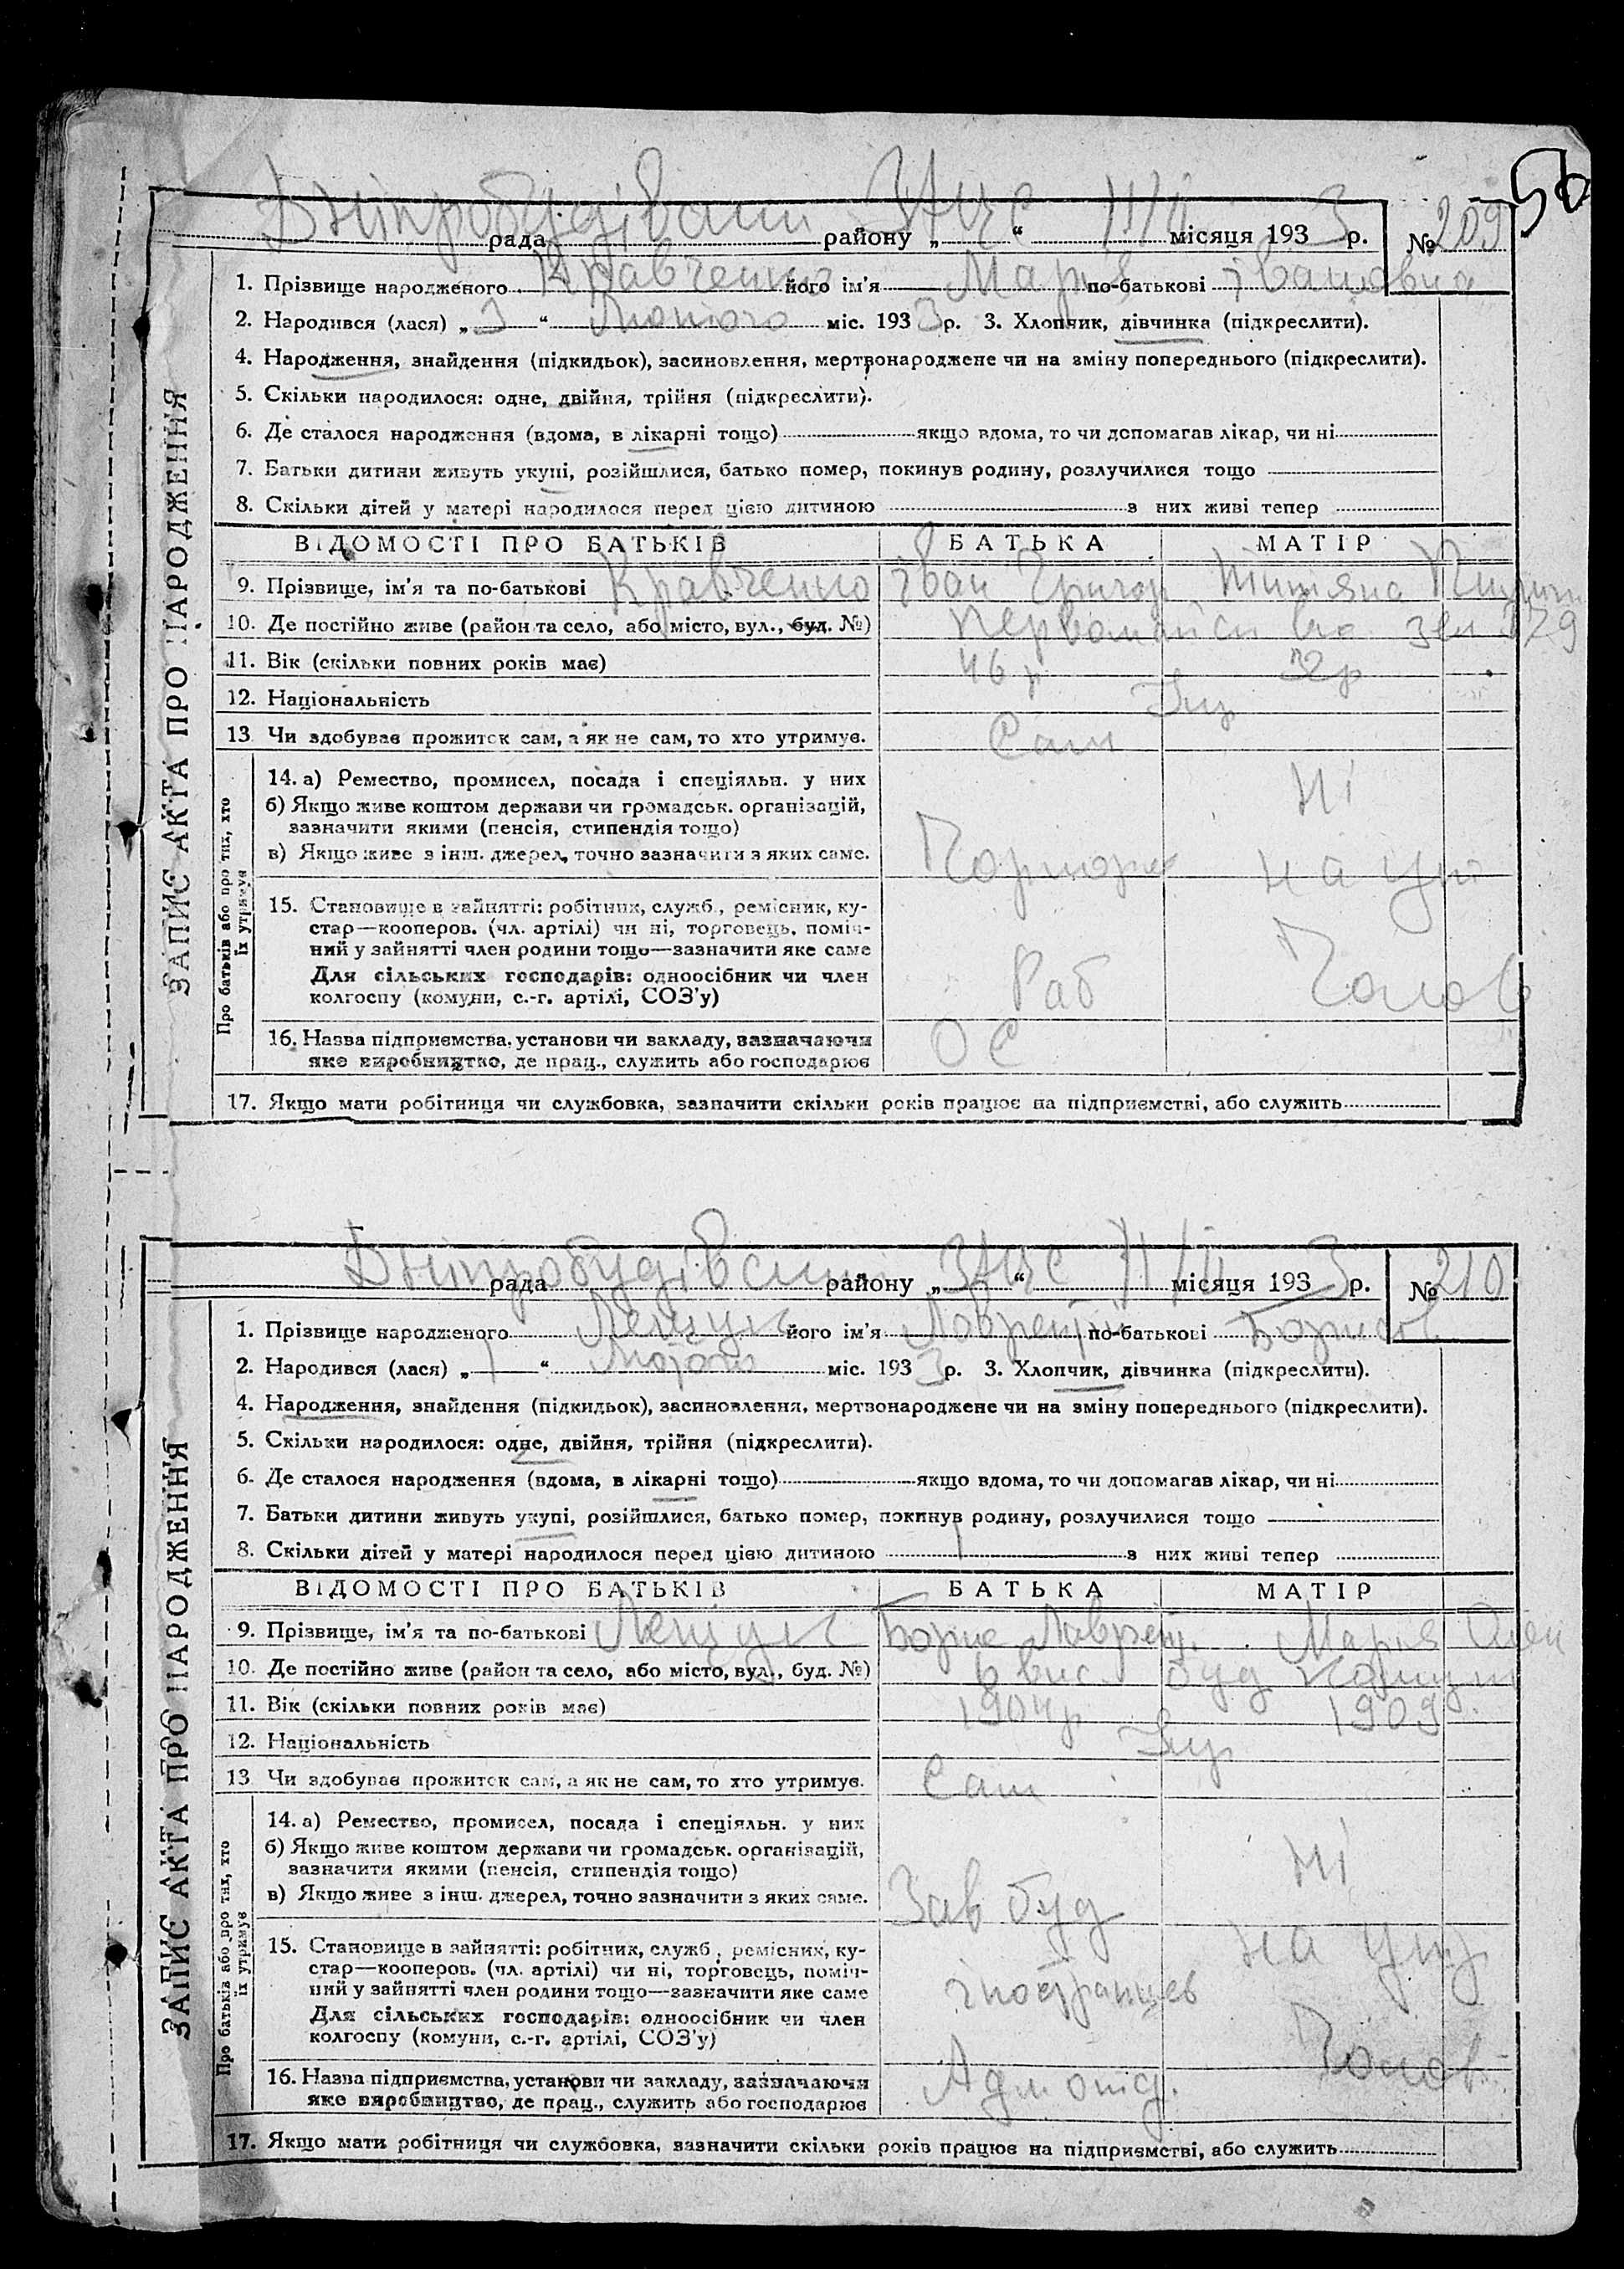 56
Дніпробудівський ЗАЦС 11/II
рада району „ “ місяця 1933 р. № 209
1. Прізвище народженого Кравченко його ім'я Марія по-батькові Івановна
2. Народився (лася) „3“ Лютого міс. 1933 р. 3. Хлопчик, дівчинка (підкреслити).
4. Народження, знайдення (підкидьок), засиновлення, мертвонароджене чи на зміну попереднього (підкреслити).
5. Скільки народилося: одне, двійня, трійня (підкреслити).
6. Де сталося народження (вдома, в лікарні тощо) якщо вдома, то чи допомагав лікар, чи ні
7. Батьки дитини живуть укупі, розійшлися, батько помер, покинув родину, розлучилися тощо
8. Скільки дітей у матері народилося перед цією дитиною з них живі тепер
ЗАПИС АКТА ПРО НАРОДЖЕННЯ
ВІДОМОСТІ ПРО БАТЬКІВ БАТЬКА МАТІР
9. Прізвище, ім'я та по-батькові Кравченко Іван Григор
10. Де постійно живе (район та село, або місто, вул., буд. №)
11. Вік (скільки повних років має) 46 р 32 р
12. Національність Укр
13. Чи здобуває прожиток сам, а як не сам, то хто утримує. Сам
Про батьків або про тих, хто їх утримує
14. а) Ремество, промисел, посада і спеціяльн. у них Ні
б) Якщо живе коштом держави чи громадськ. організацій,
зазначити якими (пенсія, стипендія тощо)
в) Якщо живе з інш. джерел, точно зазначити з яких саме. на
15. Становище в зайнятті: робітник, служб., ремісник, ку-
стар—кооперов. (чл. артілі) чи ні, торговець, поміч-
ний у зайнятті член родини тощо—зазначити яке саме Раб Чолов
Для сільських господарів: одноосібник чи член
колгоспу (комуни, с.-г. артілі, СОЗ'у)
16. Назва підприємства, установи чи закладу, зазначаючи ОС
яке виробництво, де прац., служить або господарює
17. Якщо мати робітниця чи службовка, зазначити скільки років працює на підприємстві, або служить
Дніпробудівський ЗАЦС 11/II
рада району „ “ місяця 1933 р. № 210
1. Прізвище народженого його ім'я Лаврентій по-батькові Борисов
2. Народився (лася) „1“ Лютого міс. 1933 р. 3. Хлопчик, дівчинка (підкреслити).
4. Народження, знайдення (підкидьок), засиновлення, мертвонароджене чи на зміну попереднього (підкреслити).
5. Скільки народилося: одне, двійня, трійня (підкреслити).
6. Де сталося народження (вдома, в лікарні тощо) якщо вдома, то чи допомагав лікар, чи ні
7. Батьки дитини живуть укупі, розійшлися, батько помер, покинув родину, розлучилися тощо
8. Скільки дітей у матері народилося перед цією дитиною 1 з них живі тепер
ЗАПИС АКТА ПРО НАРОДЖЕННЯ
ВІДОМОСТІ ПРО БАТЬКІВ БАТЬКА МАТІР
9. Прізвище, ім'я та по-батькові Борис Лаврент. Марія Олек
10. Де постійно живе (район та село, або місто, вул., буд. №) 6 вис. буд
11. Вік (скільки повних років має) 1904 р 1909
12. Національність Укр
13. Чи здобуває прожиток сам, а як не сам, то хто утримує. Сам
Про батьків або про тих, хто їх утримує
14. а) Ремество, промисел, посада і спеціяльн. у них
б) Якщо живе коштом держави чи громадськ. організацій, Ні
зазначити якими (пенсія, стипендія тощо)
в) Якщо живе з інш. джерел, точно зазначити з яких саме. Зав буд
15. Становище в зайнятті: робітник, служб., ремісник, ку- на утр
стар—кооперов. (чл. артілі) чи ні, торговець, поміч-
ний у зайнятті член родини тощо—зазначити яке саме іностранцев
Для сільських господарів: одноосібник чи член
колгоспу (комуни, с.-г. артілі, СОЗ'у) Чолов
16. Назва підприємства, установи чи закладу, зазначаючи Адм отд.
яке виробництво, де прац., служить або господарює
17. Якщо мати робітниця чи службовка, зазначити скільки років працює на підприємстві, або служить